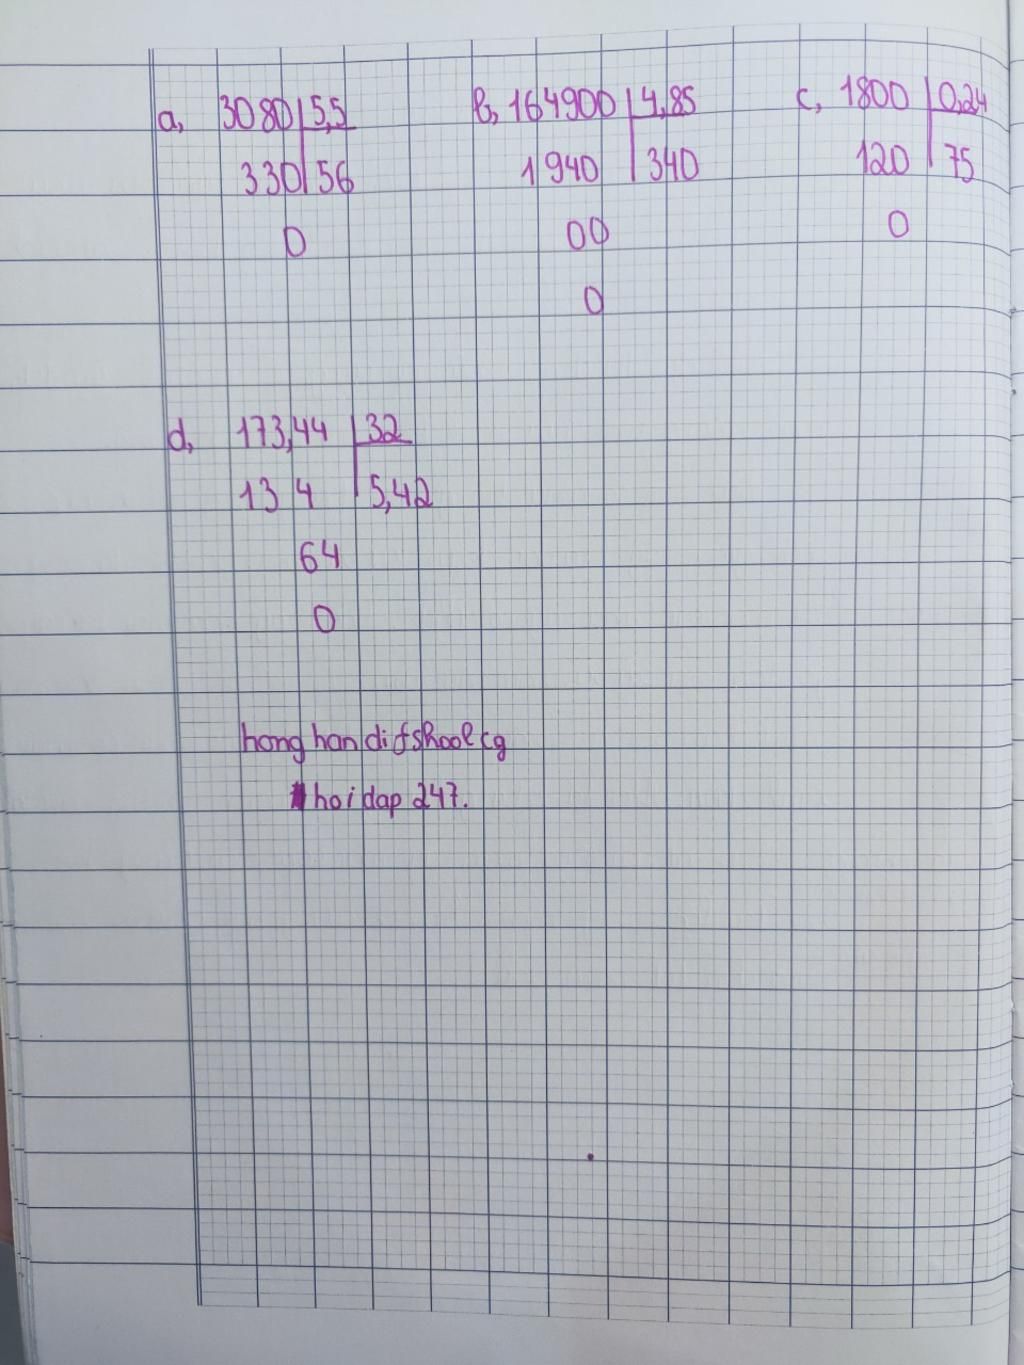 a, 3080 5,5 b, 164900 4,85 c, 1800 0,24
330 56 1940 340 120 75
0 00 0
0
d, 173,44 32
13 4 5,42
64
0
hong han di fshool cg
hoi dap 247.